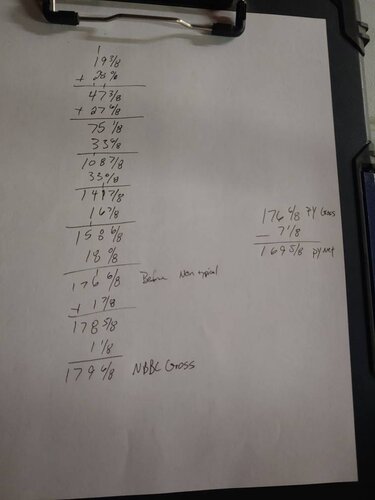 19 3/8
+ 28 0/8
47 3/8
+ 27 6/8
75 1/8
33 6/8
108 7/8
33 0/8
141 7/8
16 7/8
158 6/8
18 0/8
176 6/8 Before Non typical
+ 1 7/8
178 5/8
1 1/8
179 6/8 NBBC Gross
176 6/8 PY Gross
- 7 1/8
169 5/8 PY Net